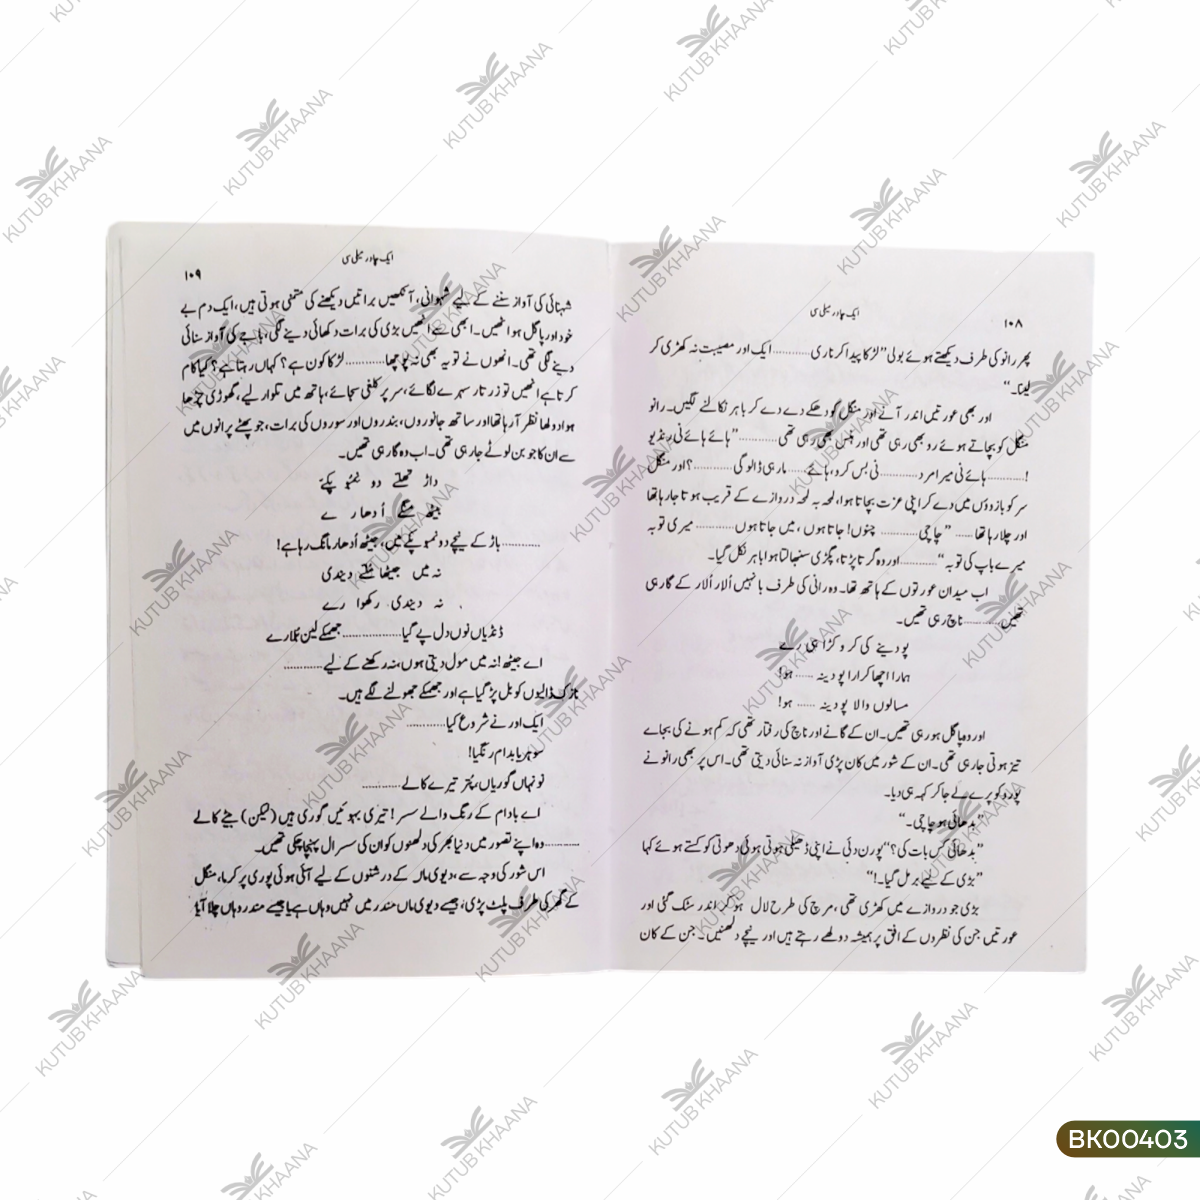 ۱۰۸
ایک چادر میلی سی
پھر رانو کی طرف دیکھتے ہوئے بولی ”لڑکا پیدا کرنا ری ............ ایک اور مصیبت نہ کھڑی کر
لینا۔“
اور بھی عورتیں اندر آنے اور منگل کو دھکے دے دے کر باہر نکالنے لگیں۔ رانو
منگل کو بچاتے ہوئے رو بھی رہی تھی اور ہنس بھی رہی تھی ............ ”ہائے ہائے نی رنڈیو
!............ ہائے نی میرا مرد ............ نی بس کرو، ہائے ...... مار ہی ڈالو گی ............؟ اور منگل
سر کو بازوؤں میں دے کر اپنی عزت بچاتا ہوا، لمحہ بہ لمحہ دروازے کے قریب ہوتا جا رہا تھا
اور چلا رہا تھا ...... ”چاچی ............ چنوں! جاتا ہوں، میں جاتا ہوں ............ میری توبہ
میرے باپ کی توبہ“ ............ اور وہ گرتا پڑتا، پگڑی سنبھالتا ہوا باہر نکل گیا۔
اب میدان عورتوں کے ہاتھ تھا۔ وہ رانی کی طرف بانہیں اُلار اُلار کے گا رہی
تھیں ............ ناچ رہی تھیں۔
پودینے کی کر و کڑاہی رے
ہمارا اچھا کرارا پودینہ ...... ہو!
مسالوں والا پودینہ ...... ہو!
اور وہ پاگل ہو رہی تھیں۔ ان کے گانے اور ناچ کی رفتار تھی کہ کم ہونے کی بجائے
تیز ہوتی جا رہی تھی۔ ان کے شور میں کان پڑی آواز نہ سنائی دیتی تھی۔ اس پر بھی رانو نے
پورو کو پرے لے جا کر کہہ ہی دیا۔
”بدھائی ہو چاچی۔“
”بدھائی کس بات کی؟“ پورن دئی نے اپنی ڈھیلی ہوتی ہوئی دھوتی کو کستے ہوئے کہا
”بڑی کے لیے بر مل گیا۔!“
بڑی جو دروازے میں کھڑی تھی، مرچ کی طرح لال ہو کر اندر سٹک گئی اور
عورتیں جن کی نظروں کے افق پر ہمیشہ دولھے رہتے ہیں اور نیچے دلھنیں۔ جن کے کان
ایک چادر میلی سی
۱۰۹
شہنائی کی آواز سننے کے لیے شہوانی، آنکھیں براتیں دیکھنے کی متمنی ہوتی ہیں، ایک دم بے
خود اور پاگل ہو اٹھیں۔ ابھی سے انھیں بڑی کی برات دکھائی دینے لگی، باجے کی آواز سنائی
دینے لگی تھی۔ انھوں نے تو یہ بھی نہ پوچھا ............ لڑکا کون ہے؟ کہاں رہتا ہے؟ کیا کام
کرتا ہے! انھیں تو زرتار سہرے لگائے، سر پر کلغی سجائے، ہاتھ میں تلوار لیے، گھوڑی چڑھا
ہوا دولھا نظر آ رہا تھا اور ساتھ جانوروں، بندروں اور سوروں کی برات، جو پھٹے پرانوں میں
سے ان کا جوبن لوٹے جا رہی تھی۔ اب وہ گا رہی تھیں۔
داڑ تھلے دو نمبو پکے
جیٹھ منگے اُدھار ے
............ باڑ کے نیچے دو نمبو پکے ہیں، جیٹھ اُدھار مانگ رہا ہے!
نہ میں جیٹھا ملّے دیندی
نہ دیندی رکھوا رے
ڈنڈیاں نوں ول پے گیا ............ جھمکے لین ہُلارے
اے جیٹھ! نہ میں مول دیتی ہوں، نہ رکھنے کے لیے ............
نازک ڈالیوں کو بل پڑ گیا ہے اور جھمکے جھولنے لگے ہیں۔
ایک اور نے شروع کیا ............
سوہریا بدام رنگیا!
نونہاں گوریاں، پتر تیرے کالے ............
اے بادام کے رنگ والے سسر! تیری بہوئیں گوری ہیں (لیکن) بیٹے کالے
............ وہ اپنے تصور میں دنیا بھر کی دلھنوں کو ان کی سسرال پہنچا چکی تھیں۔
اس شور کی وجہ سے، دیوی ماں کے درشنوں کے لیے آئی ہوئی پوری پر کرما، منگل
کے گھر کی طرف پلٹ پڑی، جیسے دیوی ماں مندر میں نہیں وہاں ہے یا جیسے مندر وہاں چلا آیا
KUTUB KHAANA
BK00403